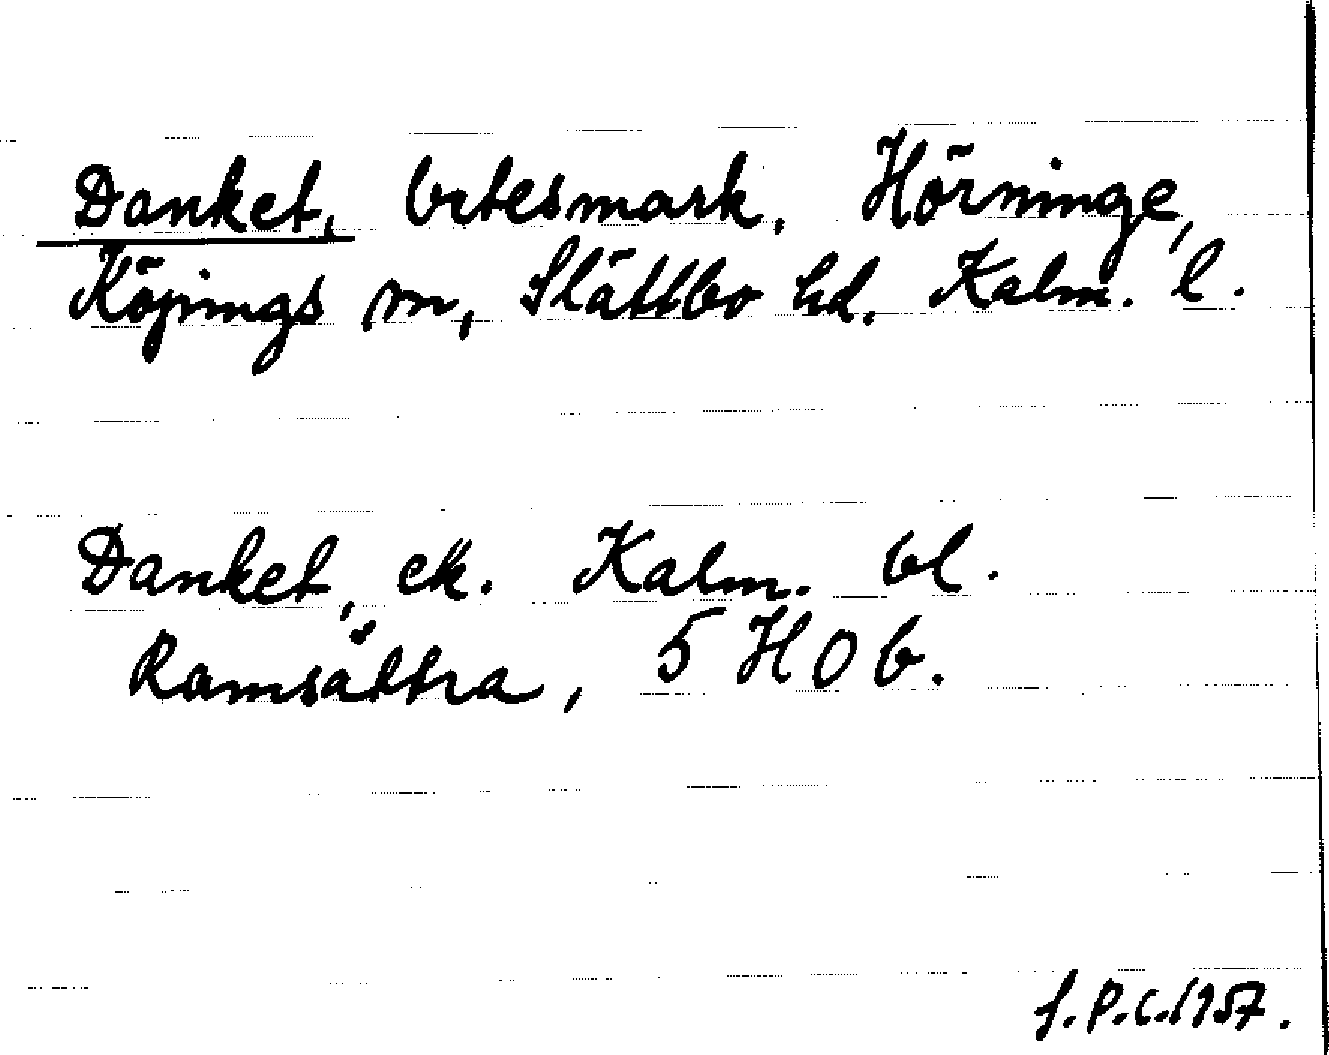 Danket, betesmark. Hörninge,
Köpings sn, Slättbo hd. Kalm. l.
Danket, ek. Kalm. bl.
Ramsättra, 5 H 0 b.
f. P.C. 1957.